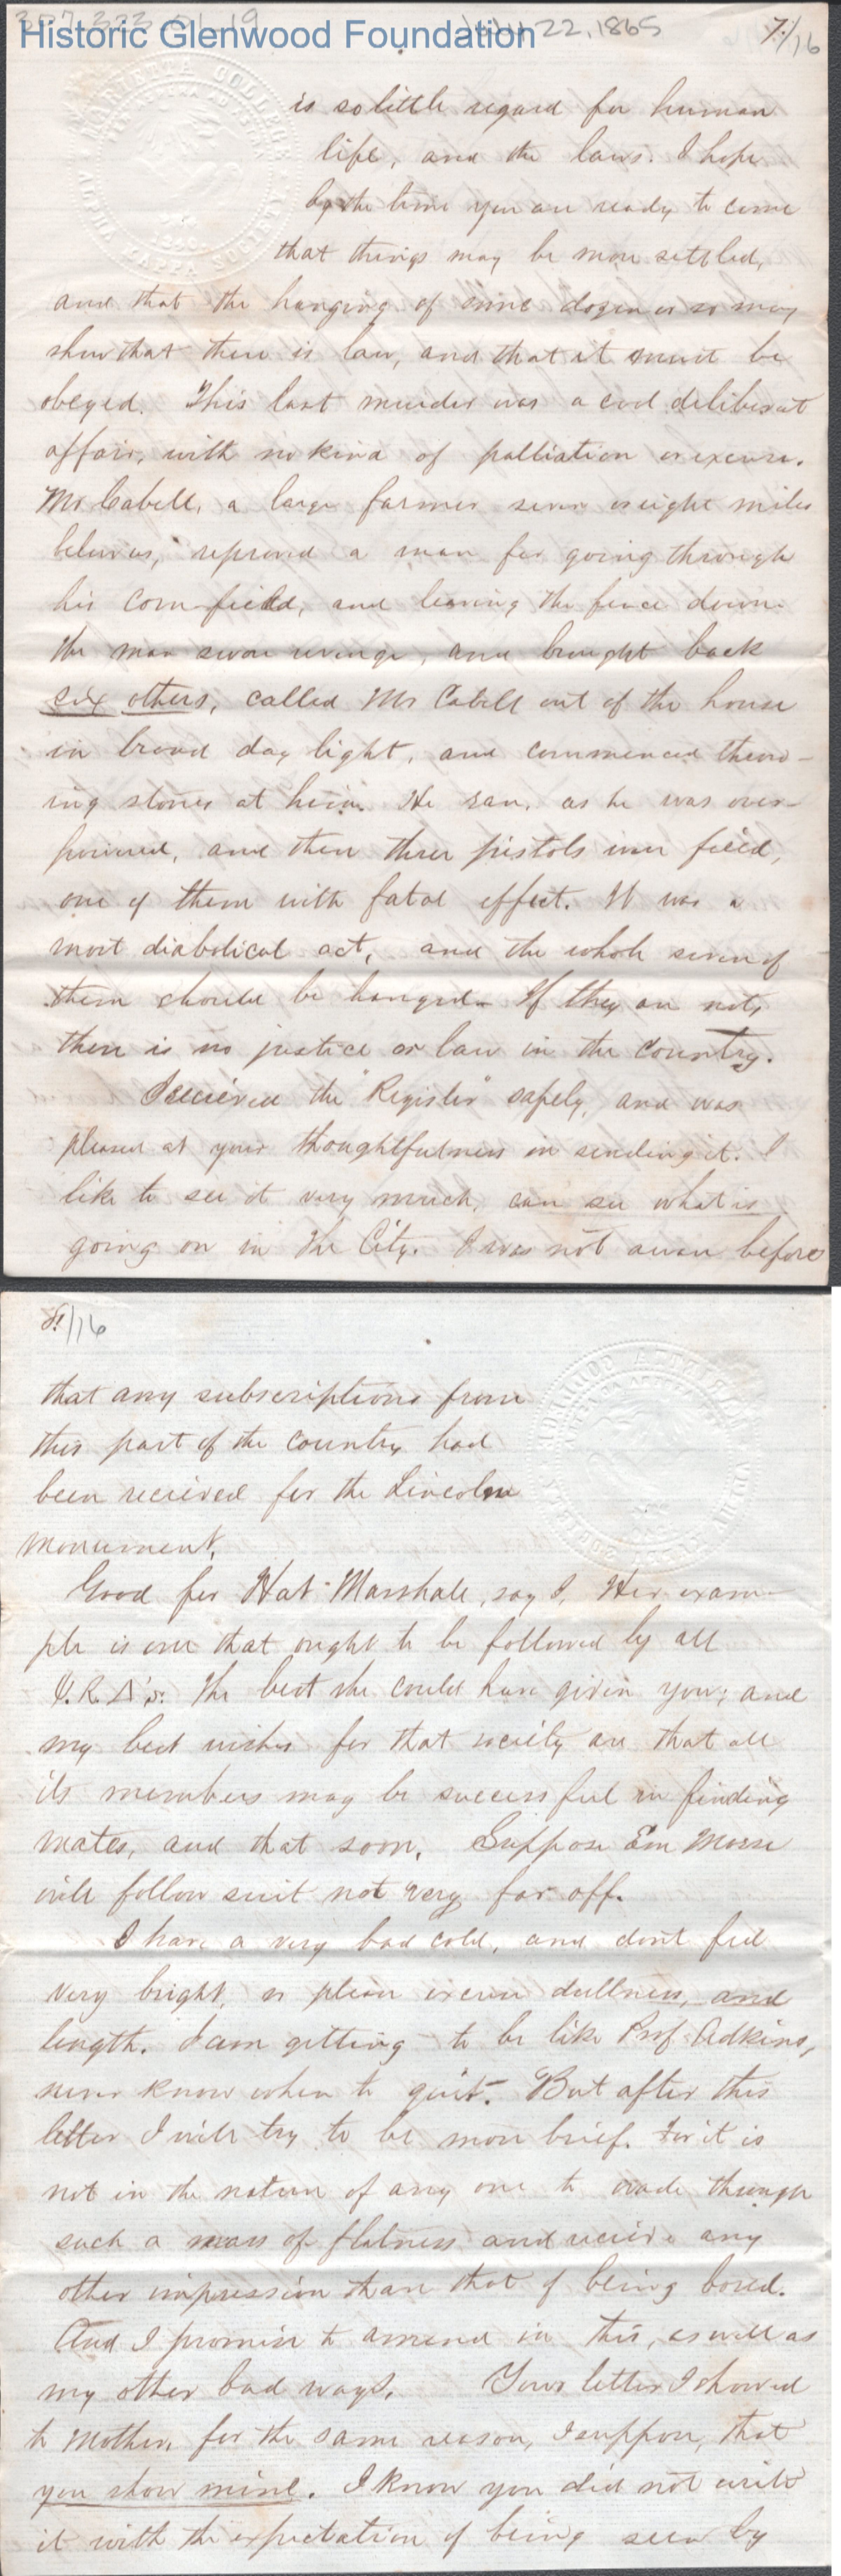 307.323.01.19
Historic Glenwood Foundation
July 22, 1865
7./16
MARIETTA COLLEGE
ALPHA KAPPA SOCIETY
is so little regard for human
life, and the laws. I hope
by the time you are ready to come
that things may be more settled,
and that the hanging of some dozen or so may
show that there is law, and that it must be
obeyed. This last murder was a cool deliberat
affair, with no kind of palliation or excuse.
Mr Cabell, a large farmer seven or eight miles
below us, reproved a man for going through
his corn-field, and leaving the fence down.
The man swore revenge, and brought back
six others, called Mr Cabell out of the house
in broad day light, and commenced throw-
ing stones at him. He ran, as he was over-
powered, and then three pistols were fired,
one of them with fatal effect. It was a
most diabolical act, and the whole seven of
them should be hanged. If they are not,
there is no justice or law in the country.
I recieved the "Register" safely, and was
pleased at your thoughtfulness in sending it. I
like to see it very much, can see what is
going on in the City. I was not aware before
8./16
that any subscriptions from
this part of the country had
been recieved for the Lincoln
monument.
Good for Hat Marshall, say I. Her exam-
ple is one that ought to be followed by all
The best she could have given you; and
my best wishes for that society are that all
its members may be successful in finding
mates, and that soon. Suppose Em Morse
will follow suit not very far off.
I have a very bad cold, and dont feel
very bright, so please excuse dullness, and
length. I am getting to be like Prof. Adkins,
never know when to quit. But after this
letter I will try to be more brief. For it is
not in the nature of any one to wade through
such a mass of flatness and recieve any
other impression than that of being bored.
And I promise to amend in this, as well as
my other bad ways. Your letter I showed
to Mother, for the same reason, I suppose, that
you show mine. I know you did not write
it with the expectation of being seen by